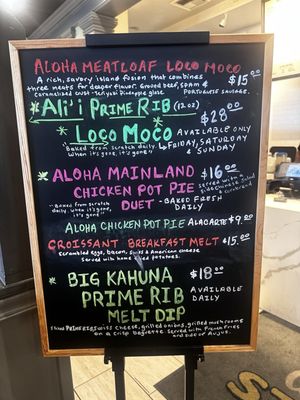 ALOHA MEATLOAF LOCO MOCO
A rich, savory island fusion that combines
three meats for deeper flavor. Ground beef, SPAM &
Portuguese Sausage.
$15.00
Ali'i PRIME RIB (12 oz)
$28.00
LOCO MOCO
AVAILABLE ONLY
FRIDAY, SATURDAY
& SUNDAY
"Baked from scratch daily.
When it's gone, it's gone"
ALOHA MAINLAND
$16.00
CHICKEN POT PIE
DUET - BAKED FRESH
DAILY
"Baked from scratch
daily. when it's gone,
it's gone"
Served with a
ALOHA CHICKEN POT PIE ALACARTE $9.00
CROISSANT BREAKFAST MELT $15.00
Scrambled eggs, bacon, swiss & American cheese
served with home fried potatoes.
BIG KAHUNA
$18.00
PRIME RIB
AVAILABLE
DAILY
MELT DIP
PRIME RIB, Swiss cheese, grilled onions, grilled mushrooms
on a crisp baguette. Served with French Fries
and side of Aujus.